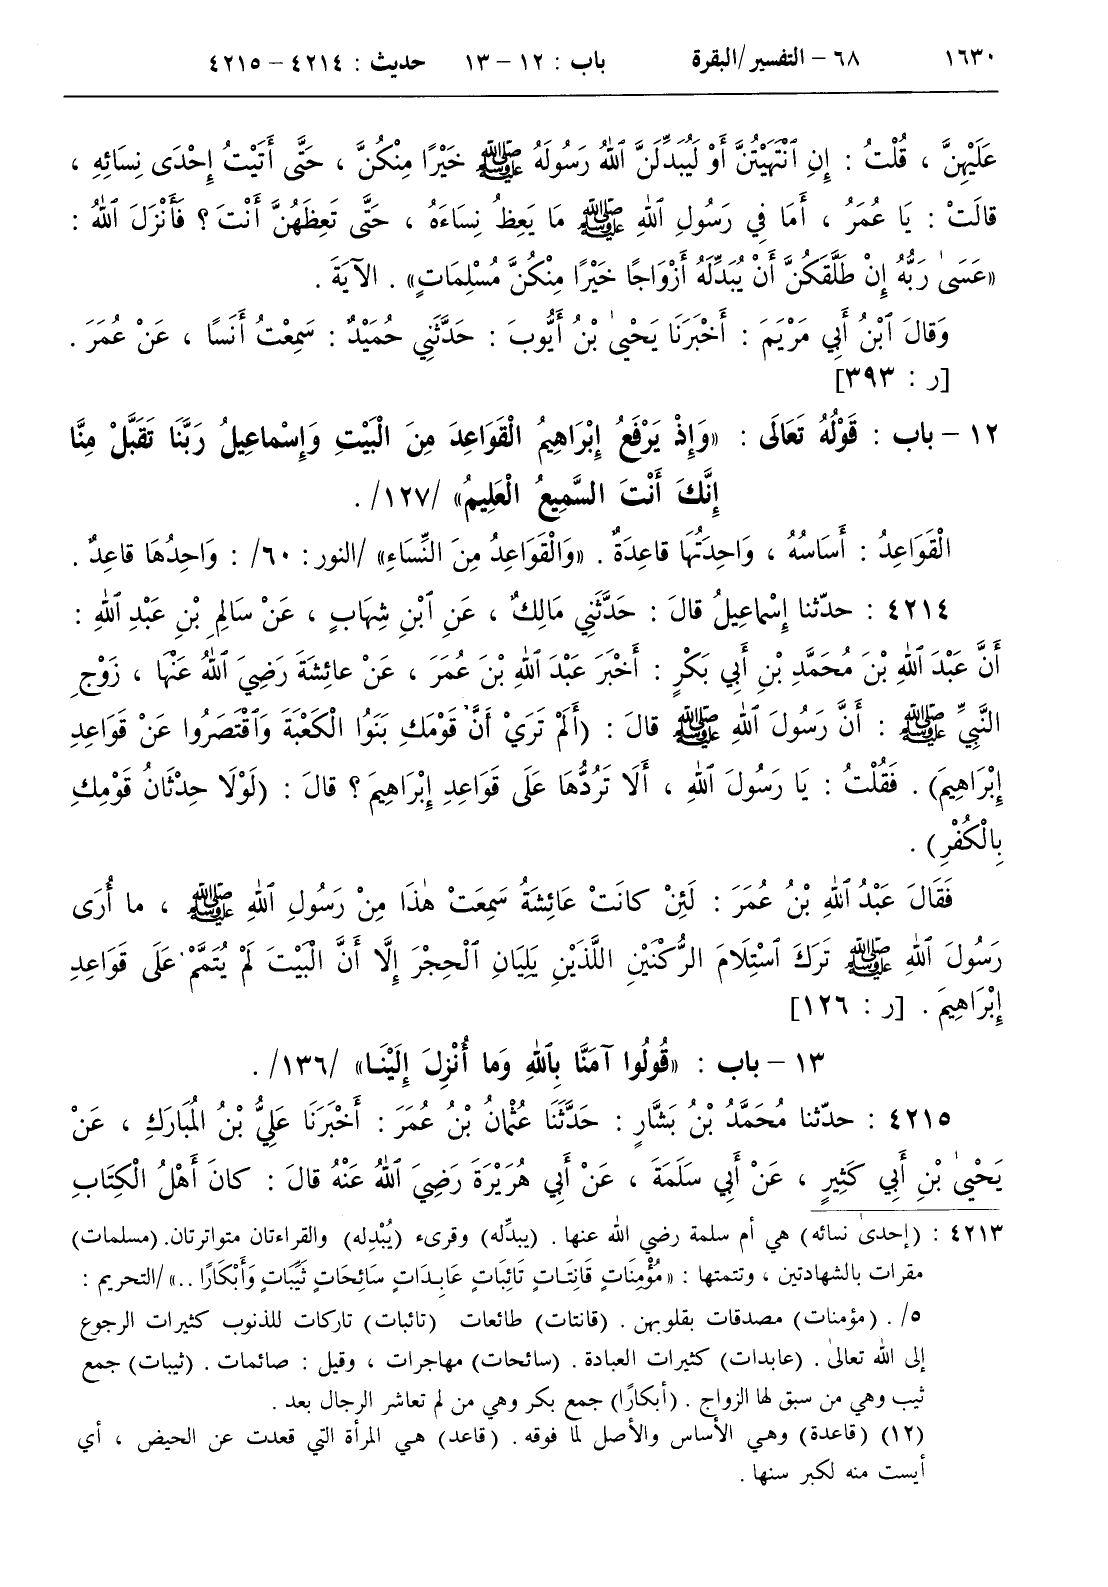 ١٦٣٠ ٦٨ – التفسير/البقرة باب : ١٢ – ١٣ حديث : ٤٢١٤ – ٤٢١٥
عَلَيْهِنَّ ، قُلْتُ : إِنِ ٱنْتَهَيْتُنَّ أَوْ لَيُبَدِّلَنَّ ٱللهُ رَسُولَهُ ﷺ خَيْرًا مِنْكُنَّ ، حَتَّى أَتَيْتُ إِحْدَى نِسَائِهِ ،
قالَتْ : يَا عُمَرُ ، أَمَا فِي رَسُولِ ٱللهِ ﷺ مَا يَعِظُ نِسَاءَهُ ، حَتَّى تَعِظَهُنَّ أَنْتَ ؟ فَأَنْزَلَ ٱللهُ :
«عَسَىٰ رَبُّهُ إِنْ طَلَّقَكُنَّ أَنْ يُبَدِّلَهُ أَزْوَاجًا خَيْرًا مِنْكُنَّ مُسْلِمَاتٍ» . الآيَةَ .
وَقالَ ٱبْنُ أَبِي مَرْيَمَ : أَخْبَرَنَا يَحْيىٰ بْنُ أَيُّوبَ : حَدَّثَنِي حُمَيْدٌ : سَمِعْتُ أَنَسًا ، عَنْ عُمَرَ .
[ر : ٣٩٣]
١٢ – باب : قَوْلُهُ تَعَالَى : «وَإِذْ يَرْفَعُ إِبْرَاهِيمُ الْقَوَاعِدَ مِنَ الْبَيْتِ وَإِسْماعِيلُ رَبَّنَا تَقَبَّلْ مِنَّا
إِنَّكَ أَنْتَ السَّمِيعُ الْعَلِيمُ» /١٢٧/ .
الْقَوَاعِدُ : أَسَاسُهُ ، وَاحِدَتُهَا قاعِدَةٌ . «وَالْقَوَاعِدُ مِنَ النِّسَاءِ» /النور : ٦٠/ : وَاحِدُهَا قاعِدٌ .
٤٢١٤ : حدّثنا إِسْماعِيلُ قالَ : حَدَّثَنِي مَالِكٌ ، عَنِ ٱبْنِ شِهَابٍ ، عَنْ سَالِمِ بْنِ عَبْدِ ٱللهِ :
أَنَّ عَبْدَ ٱللهِ بْنَ مُحَمَّدِ بْنِ أَبِي بَكْرٍ : أَخْبَرَ عَبْدَ ٱللهِ بْنَ عُمَرَ ، عَنْ عائِشَةَ رَضِيَ ٱللهُ عَنْهَا ، زَوْجِ
النَّبِيِّ ﷺ : أَنَّ رَسُولَ ٱللهِ ﷺ قالَ : (أَلَمْ تَرَيْ أَنَّ قَوْمَكِ بَنَوُا الْكَعْبَةَ وَٱقْتَصَرُوا عَنْ قَوَاعِدِ
إِبْرَاهِيمَ) . فَقُلْتُ : يَا رَسُولَ ٱللهِ ، أَلَا تَرُدُّهَا عَلَى قَوَاعِدِ إِبْرَاهِيمَ ؟ قالَ : (لَوْلَا حِدْثَانُ قَوْمِكِ
بِالْكُفْرِ) .
فَقَالَ عَبْدُ ٱللهِ بْنُ عُمَرَ : لَئِنْ كانَتْ عَائِشَةُ سَمِعَتْ هٰذَا مِنْ رَسُولِ ٱللهِ ﷺ ، ما أُرَى
رَسُولَ ٱللهِ ﷺ تَرَكَ ٱسْتِلَامَ الرُّكْنَيْنِ اللَّذَيْنِ يَلِيَانِ ٱلْحِجْرَ إِلَّا أَنَّ الْبَيْتَ لَمْ يُتَمَّمْ عَلَى قَوَاعِدِ
إِبْرَاهِيمَ . [ر : ١٢٦]
١٣ – باب : «قُولُوا آمَنَّا بِٱللهِ وَما أُنْزِلَ إِلَيْنَا» /١٣٦/ .
٤٢١٥ : حدّثنا مُحَمَّدُ بْنُ بَشَّارٍ : حَدَّثَنَا عُثْمانُ بْنُ عُمَرَ : أَخْبَرَنَا عَلِيُّ بْنُ المُبَارَكِ ، عَنْ
يَحْيىٰ بْنِ أَبِي كَثِيرٍ ، عَنْ أَبِي سَلَمَةَ ، عَنْ أَبِي هُرَيْرَةَ رَضِيَ ٱللهُ عَنْهُ قالَ : كانَ أَهْلُ الْكِتَابِ
٤٢١٣ : (إحدىٰ نسائه) هي أم سلمة رضي الله عنها . (يبدِّله) وقرىء (يُبْدِله) والقراءتان متواترتان. (مسلمات)
مقرات بالشهادتين ، وتتمتها : «مُؤْمِنَاتٍ قَانِتَاتٍ تَائِبَاتٍ عَابِدَاتٍ سَائِحَاتٍ ثَيِّبَاتٍ وَأَبْكَارًا ..» /التحريم :
٥/ . (مؤمنات) مصدقات بقلوبهن . (قانتات) طائعات (تائبات) تاركات للذنوب كثيرات الرجوع
إلى الله تعالىٰ . (عابدات) كثيرات العبادة . (سائحات) مهاجرات ، وقيل : صائمات . (ثيبات) جمع
ثيب وهي من سبق لها الزواج . (أبكارًا) جمع بكر وهي من لم تعاشر الرجال بعد .
(١٢) (قاعدة) وهي الأساس والأصل لما فوقه . (قاعد) هي المرأة التي قعدت عن الحيض ، أي
أيست منه لكبر سنها .